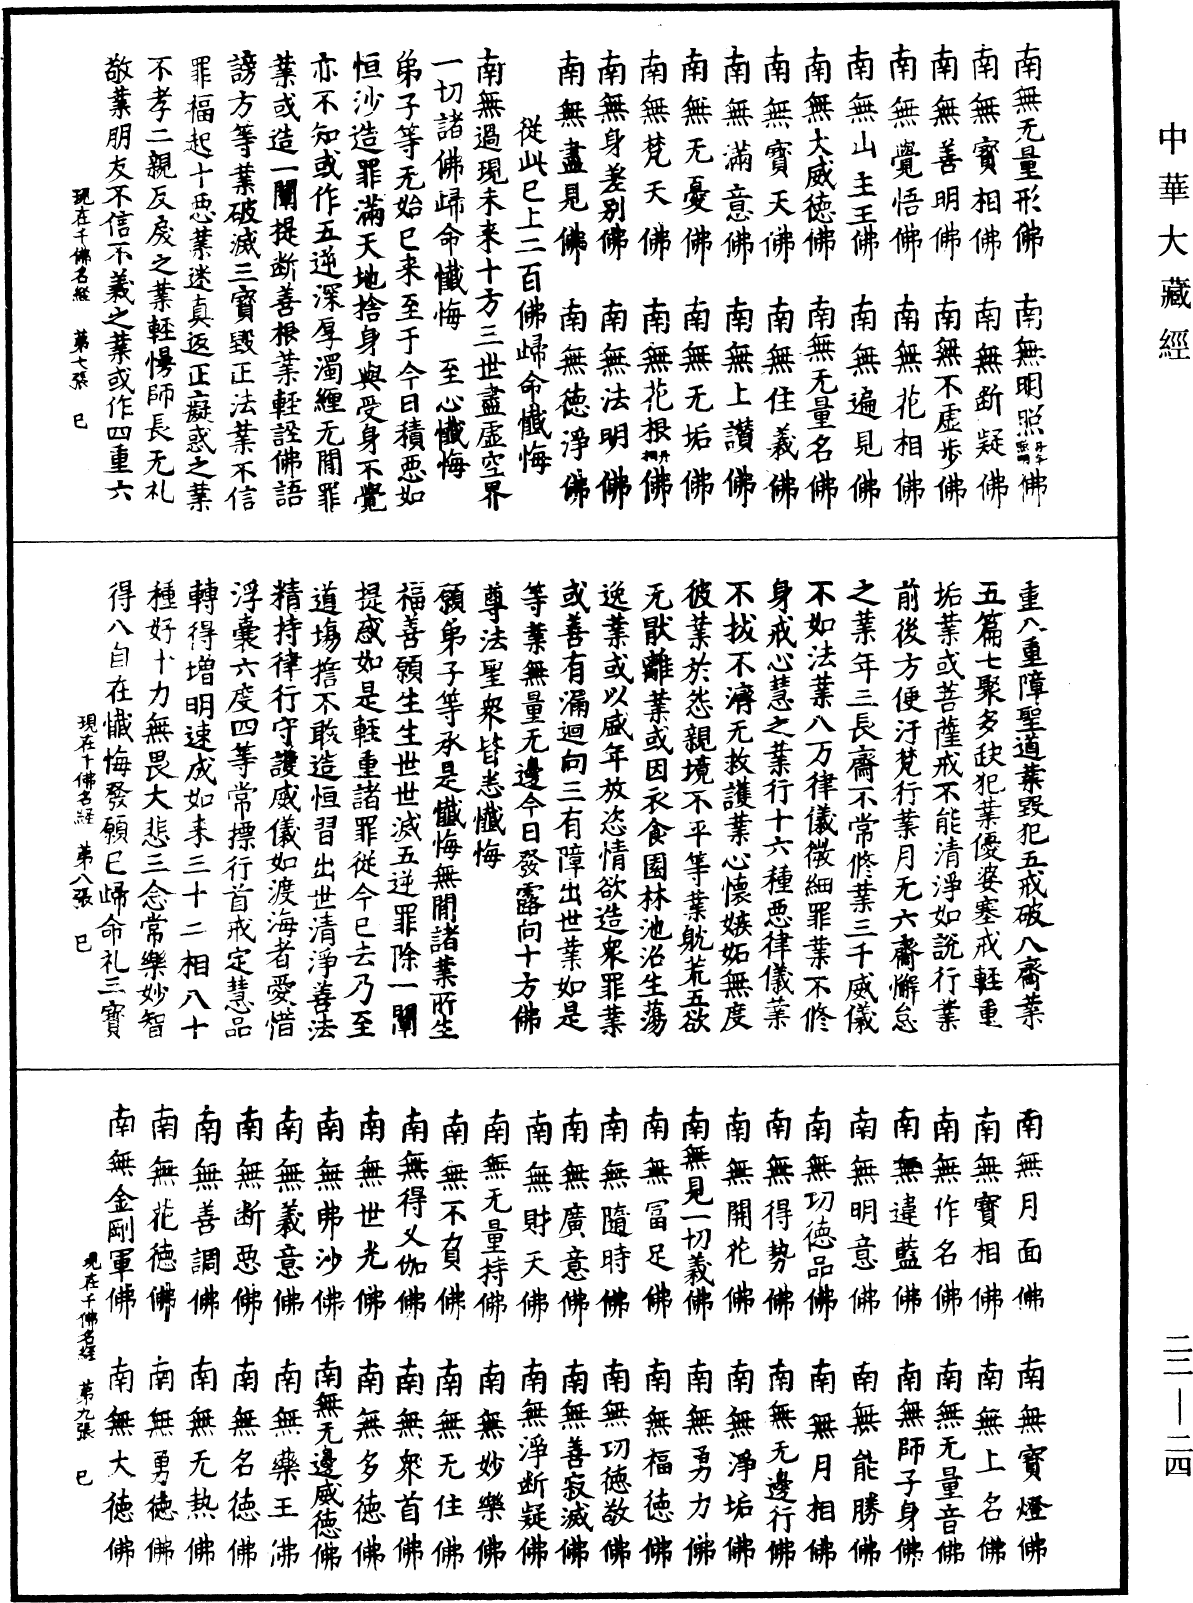 中華大藏經
南無无量形佛　南無明照佛
南無寶相佛　南無斷疑佛
南無善明佛　南無不虛步佛
南無覺悟佛　南無花相佛
南無山主王佛　南無遍見佛
南無大威德佛　南無无量名佛
南無寶天佛　南無住義佛
南無滿意佛　南無上讚佛
南無无憂佛　南無无垢佛
南無梵天佛　南無花根佛
南無身差別佛　南無法明佛
南無盡見佛　南無德淨佛
從此已上二百佛歸命懺悔
南無過現未來十方三世盡虛空界
一切諸佛歸命懺悔　至心懺悔
弟子等无始已来至于今日積惡如
恒沙造罪滿天地捨身與受身不覺
亦不知或作五逆深厚濁纏无閒罪
業或造一闡提斷善根業輕誣佛語
謗方等業破滅三寶毀正法業不信
罪福起十惡業迷真返正癡惑之業
不孝二親反戾之業輕慢師長无礼
敬業朋友不信不義之業或作四重六
現在千佛名経　第七張　巳
重八重障聖道業毀犯五戒破八齋業
五篇七聚多缺犯業優婆塞戒輕重
垢業或菩薩戒不能清淨如說行業
前後方便汙梵行業月无六齋懈怠
之業年三長齋不常修業三千威儀
不如法業八万律儀微細罪業不修
身戒心慧之業行十六種惡律儀業
不拔不濟无救護業心懷嫉妬無度
彼業於怨親境不平等業躭荒五欲
无猒離業或因衣食園林池沼生蕩
逸業或以盛年放恣情欲造衆罪業
或善有漏迴向三有障出世業如是
等業無量无邊今日發露向十方佛
尊法聖衆皆悉懺悔
願弟子等承是懺悔無閒諸業所生
福善願生生世世滅五逆罪除一闡
提惑如是輕重諸罪從今已去乃至
道場誓不敢造恒習出世清淨善法
精持律行守護威儀如渡海者愛惜
浮囊六度四等常摽行首戒定慧品
轉得增明速成如来三十二相八十
種好十力無畏大悲三念常樂妙智
得八自在懺悔發願已歸命礼三寶
現在千佛名経　第八張　巳
南無月面佛　南無寶燈佛
南無寶相佛　南無上名佛
南無作名佛　南無无量音佛
南無違藍佛　南無師子身佛
南無明意佛　南無能勝佛
南無功德品佛　南無月相佛
南無得勢佛　南無无邊行佛
南無開花佛　南無淨垢佛
南無見一切義佛　南無勇力佛
南無冨足佛　南無福德佛
南無隨時佛　南無功德敬佛
南無廣意佛　南無善寂滅佛
南無財天佛　南無淨斷疑佛
南無无量持佛　南無妙樂佛
南無不負佛　南無无住佛
南無得叉伽佛　南無衆首佛
南無世光佛　南無多德佛
南無弗沙佛　南無无邊威德佛
南無義意佛　南無藥王佛
南無斷惡佛　南無名德佛
南無善調佛　南無无熱佛
南無花德佛　南無勇德佛
南無金剛軍佛　南無大德佛
現在千佛名経　第九張　巳
二二—二四